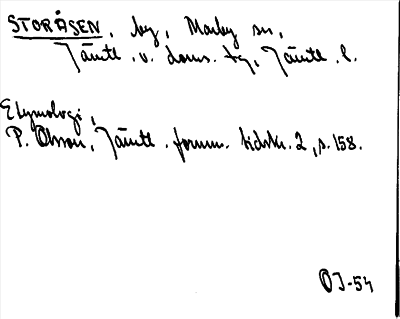 STORÅSEN, by, Marby sn,
Jämtl. v. doms. tg, Jämtl. l.
Etymologi,
P. Olsson, Jämtl. fornm. tidskr. 2, s. 158.
OJ-54